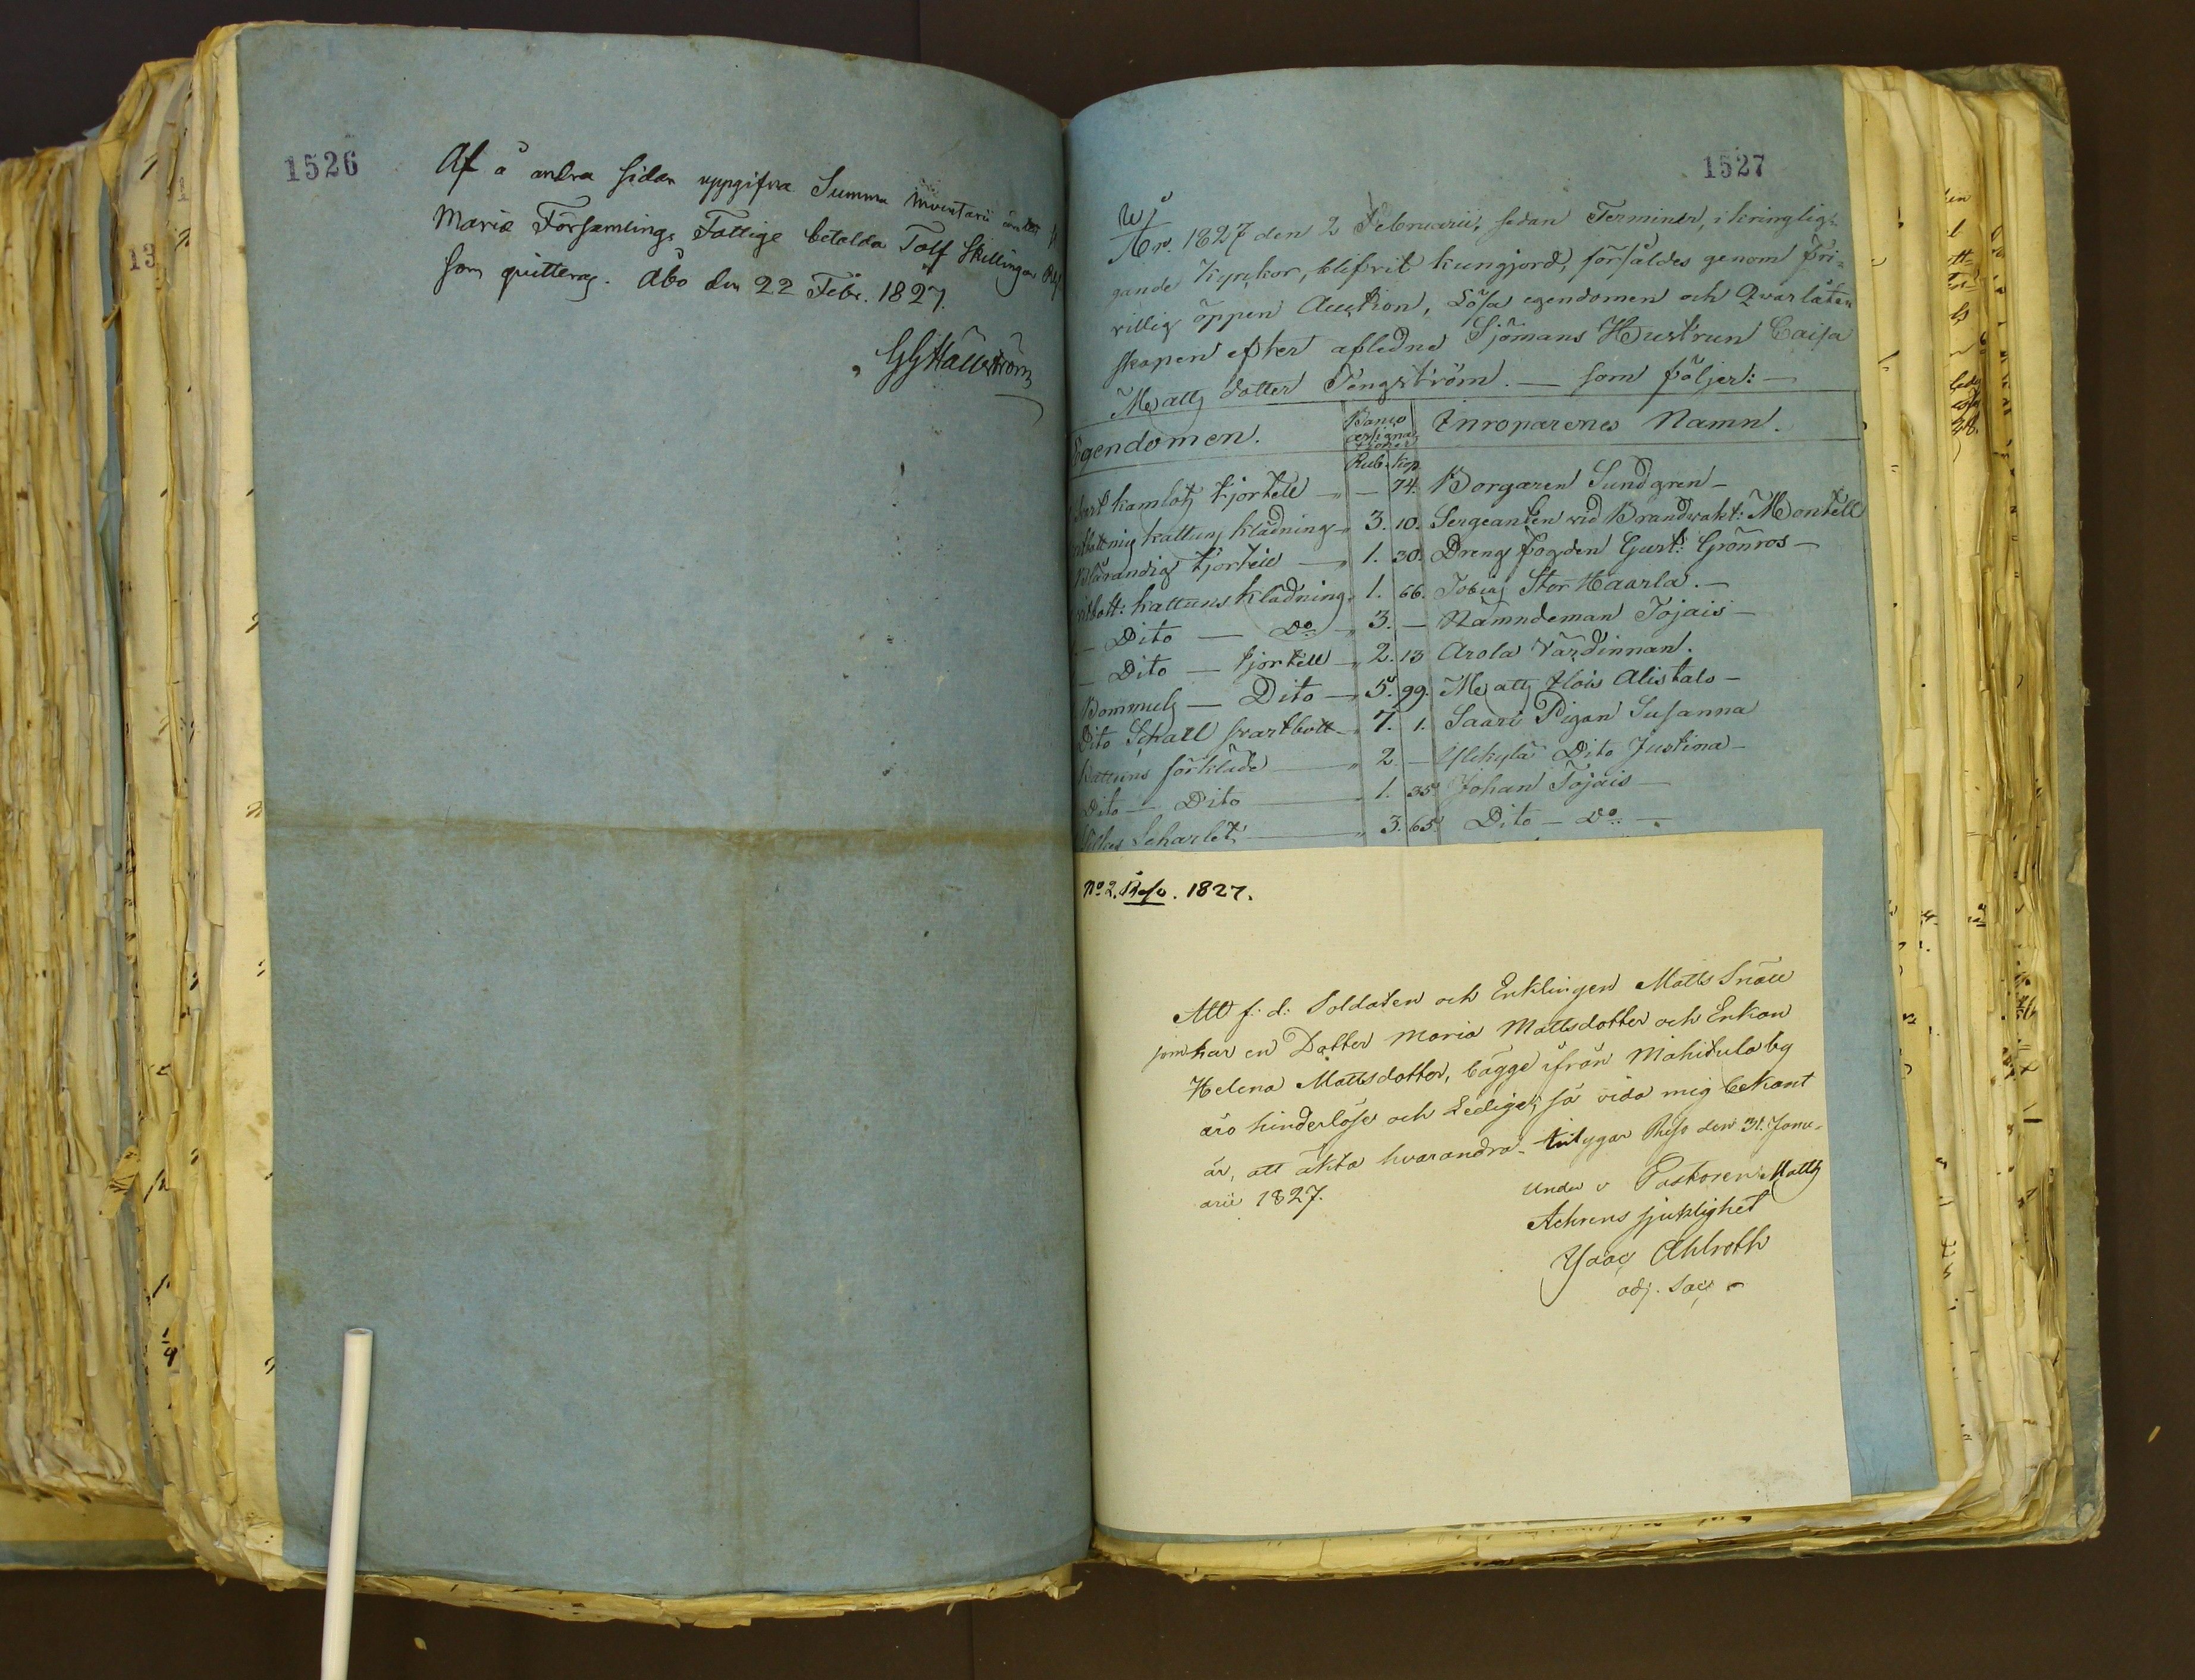 1526
Af å andra sidan uppgifna Summa Inventarii äro
Mariæ Församlings Fattige betalda Tolf Skillingar
som quitteras. Åbo den 22 Febr. 1827.
GGHällström
13
1527
År 1827 den 2 Februarii, sedan Terminer, i kringlig-
gande Kyrkor, blifvit kungjord, försåldes genom fri-
villig öppen Auction, Lösa egendomen och Qvarlåten
skapen efter afledne Sjömans Hustrun Caisa
Matts dotter Tengström. — som följer: —
Egendomen. Banco assignationer Inroparenes Namn.
Rub. Kop
Svart kamlots kjortell — 74. Borgaren Sundgren —
kattuns klädning 3. 10. Sergeanten vid Brandvakt: Montell
Blårandig kjortell 1. 30. Dreng fogden Gust: Grönros —
kattuns klädning 1. 66. Tobias Stor Haarla. —
— Dito — Do 3. — Nämndeman Tojais —
— Dito — kjortell 2. 13 Arola Värdinnan.
Bommuls — Dito — 5. 99. Matts Alois Alistalo —
Dito Schall svartbott 7. 1. Saari Pigan Susanna
Kattuns förkläde 2. — Ylikylä Dito Justina —
Dito — Dito 1. 35 Johan Tojais —
Silkes Scharlet 3. 65. Dito — Do —
No 2. Reso. 1827.
Att f: d: Soldaten och Enklingen Matts Snäll
som har en Dotter Maria Mattsdotter och Enkan
Helena Mattsdotter, bägge ifrån Mahitula by
äro hinderlöse och Ledige, så vida mig bekant
är, att äkta hvarandra. Intygar Reso den 31. Janu-
arii 1827.
Under v Pastoren Matts
Aehrens sjuklighet
Isaac Ahlroth
adj. Sacr